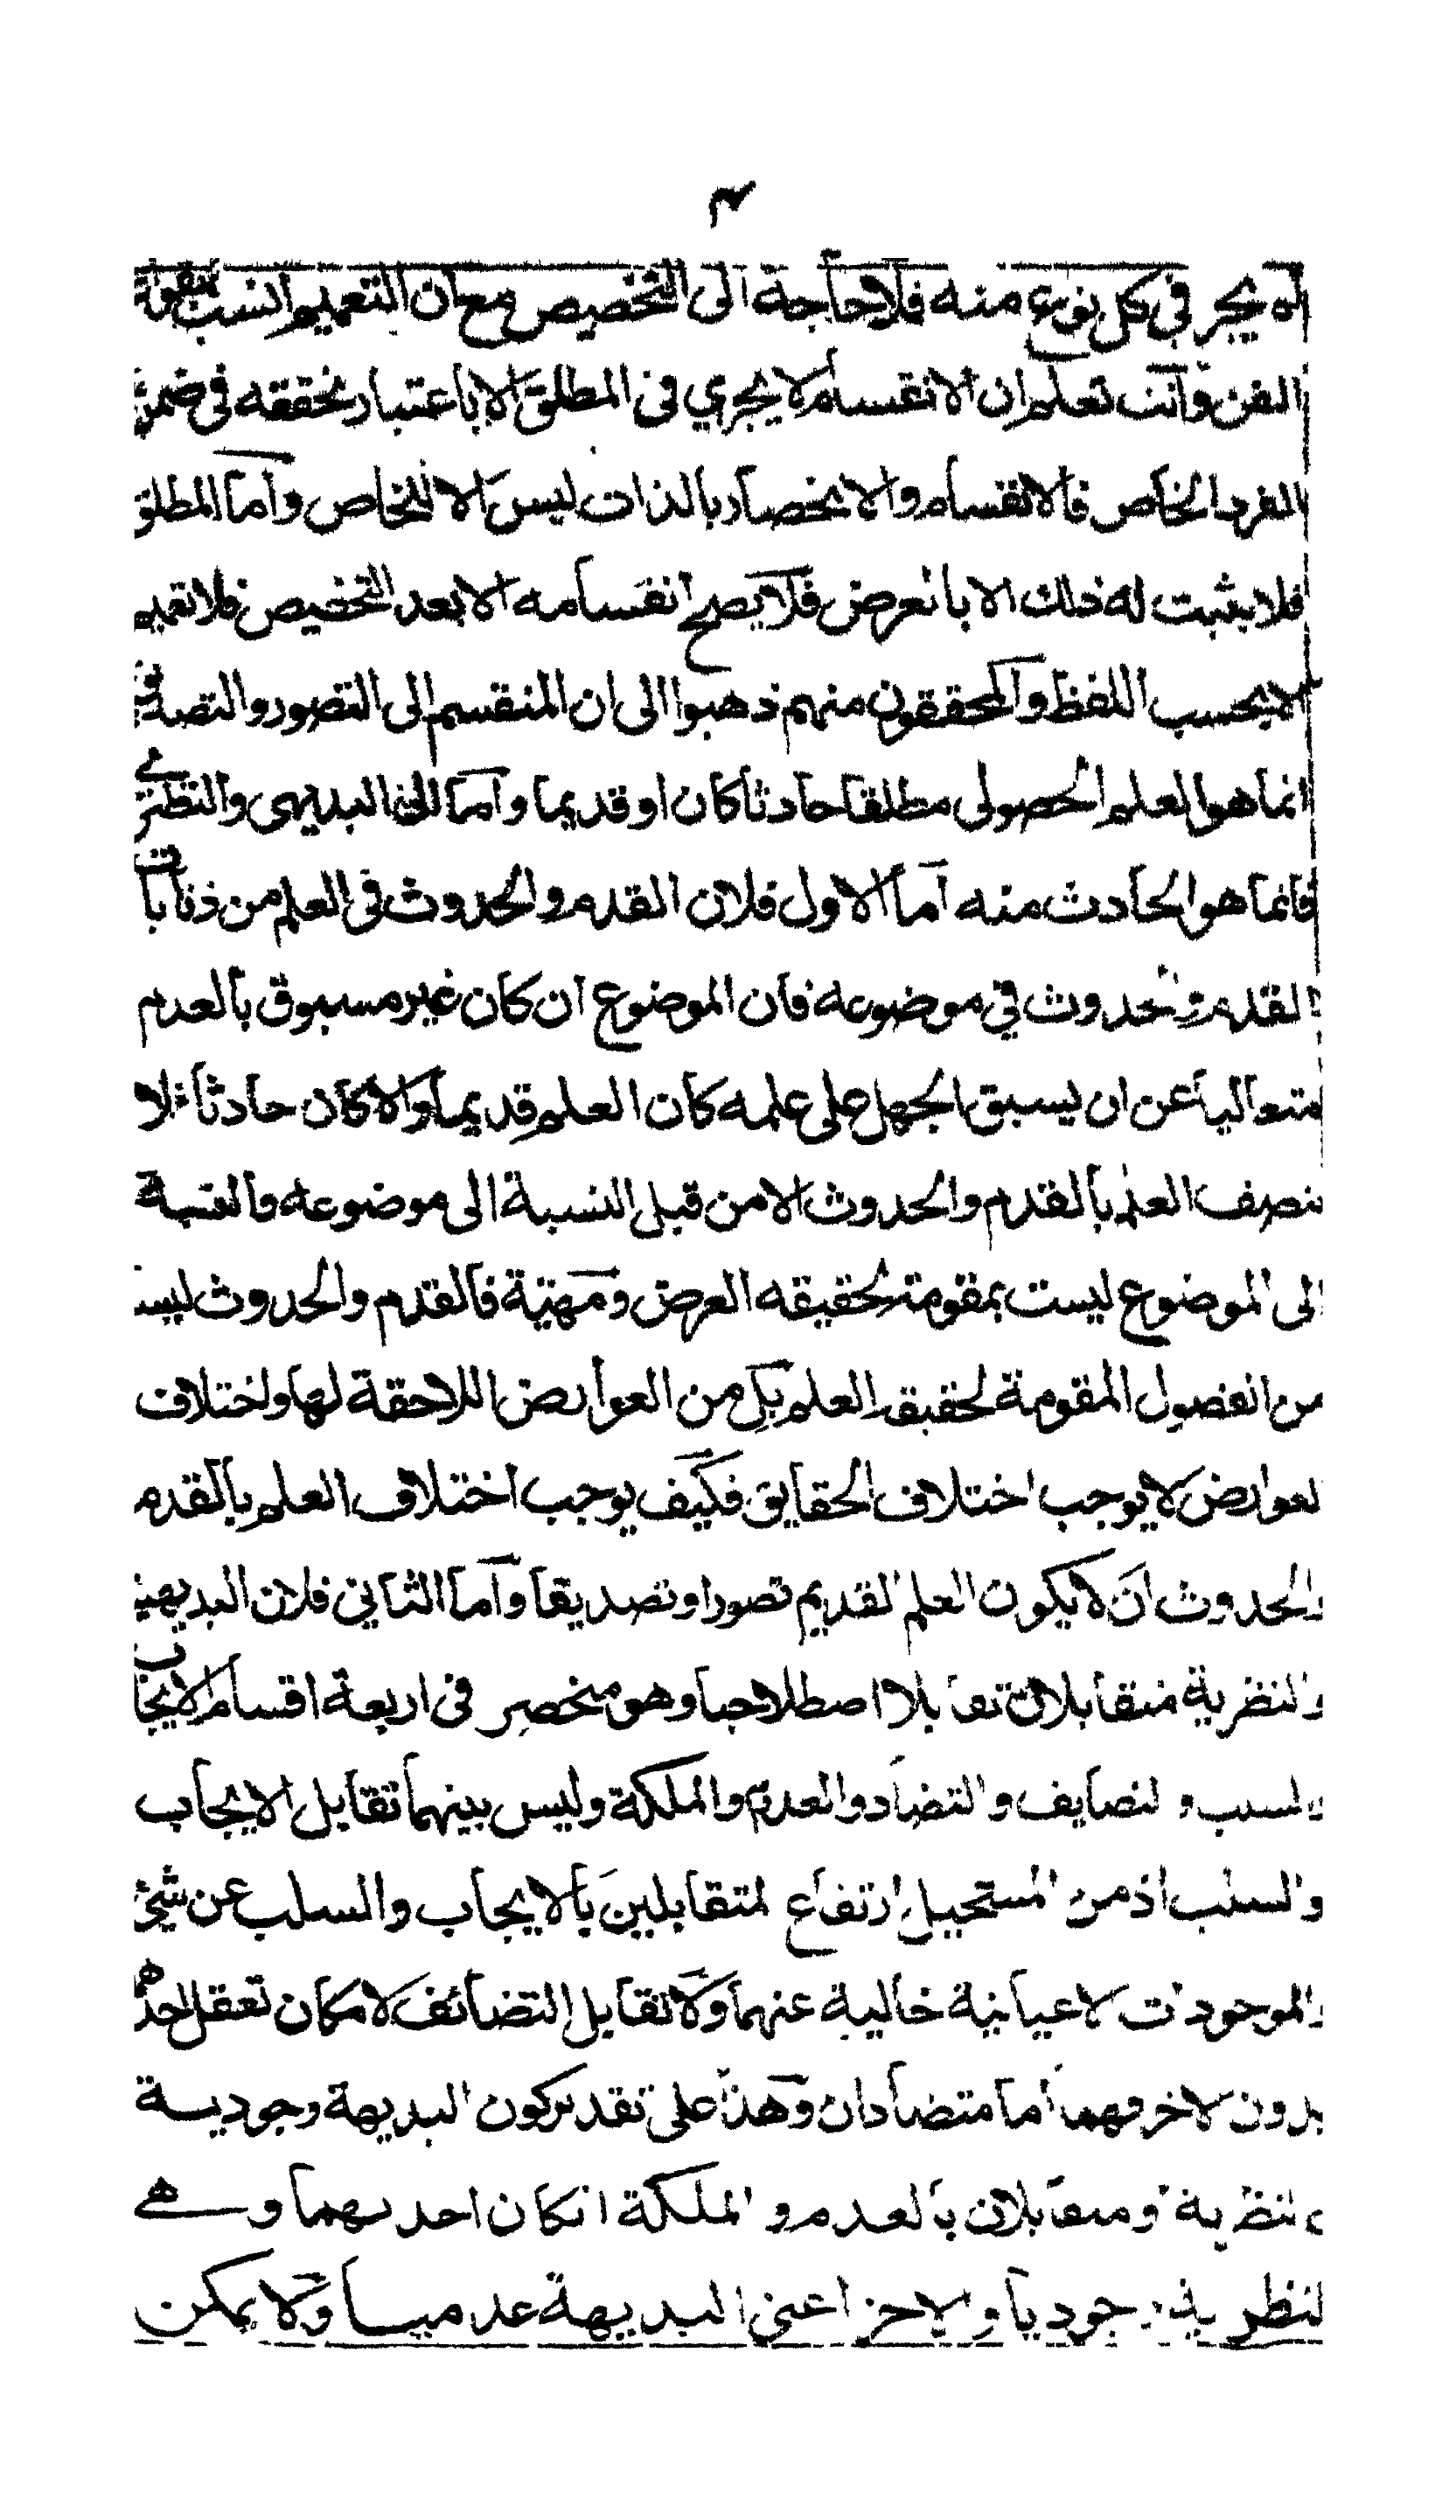 ٣
انه يجر في كل نوع منه فلا حاجة الى التخصيص مع ان التعميم انسب بقواعد
الفن وانت تعلم ان الانقسام لا يجري في المطلق الا باعتبار تحققه في ضمن
الفرد الخاص فالانقسام والانحصار بالذات ليس الا للخاص واما المطلق
فلا يثبت له ذلك الا بالعرض فلا يصح انقسامه الا بعد التخصيص فلا تعميم
الا بحسب اللفظ والمحققون منهم ذهبوا الى ان المنقسم الى التصور والتصديق
انما هو العلم الحصولى مطلقا حادثا كان او قديما واما الى البديهى والنظرى
فانما هو الحادث منه اما الاول فلان القدم والحدوث فى العلم من
القدم والحدوث في موضوعه فان الموضوع ان كان غير مسبوق بالعدم
متعاليا عن ان يسبق الجهل على علمه كان العلم قديما والا كان حادثا فلا
يتصف العلم بالقدم والحدوث الا من قبل النسبة الى موضوعه والنسبة
الى الموضوع ليست بمقومة لحقيقه العرض ومهيّة فالقدم والحدوث ليسا
من الفصول المقومة لحقيقة العلم بل من العوارض اللاحقة لها واختلاف
العوارض لا يوجب اختلاف الحقايق فكيف يوجب اختلاف العلم بالقدم
والحدوث ان لا يكون العلم القديم تصورا وتصديقا واما الثاني فلان البديهية
والنظرية متقابلان تقابلا اصطلاحيا وهو منحصر فى اربعة اقسام الايجاب
والسلب والتضايف والتضاد والعدم والملكة وليس بينهما تقابل الايجاب
والسلب اذ من المستحيل ارتفاع المتقابلين بالايجاب والسلب عن شيئ
والموجودات الاعيانية خالية عنهما ولا تقابل التضائف لامكان تعقل احدهما
بدون الاخر فهما اما متضادان وهذا على تقدير كون البديهة وجودية
كالنظرية او متقابلان بالعدم والملكة انكان احديهما وهي
النظرية وجوديا والاخر اعنى البديهة عدميا ولا يمكن